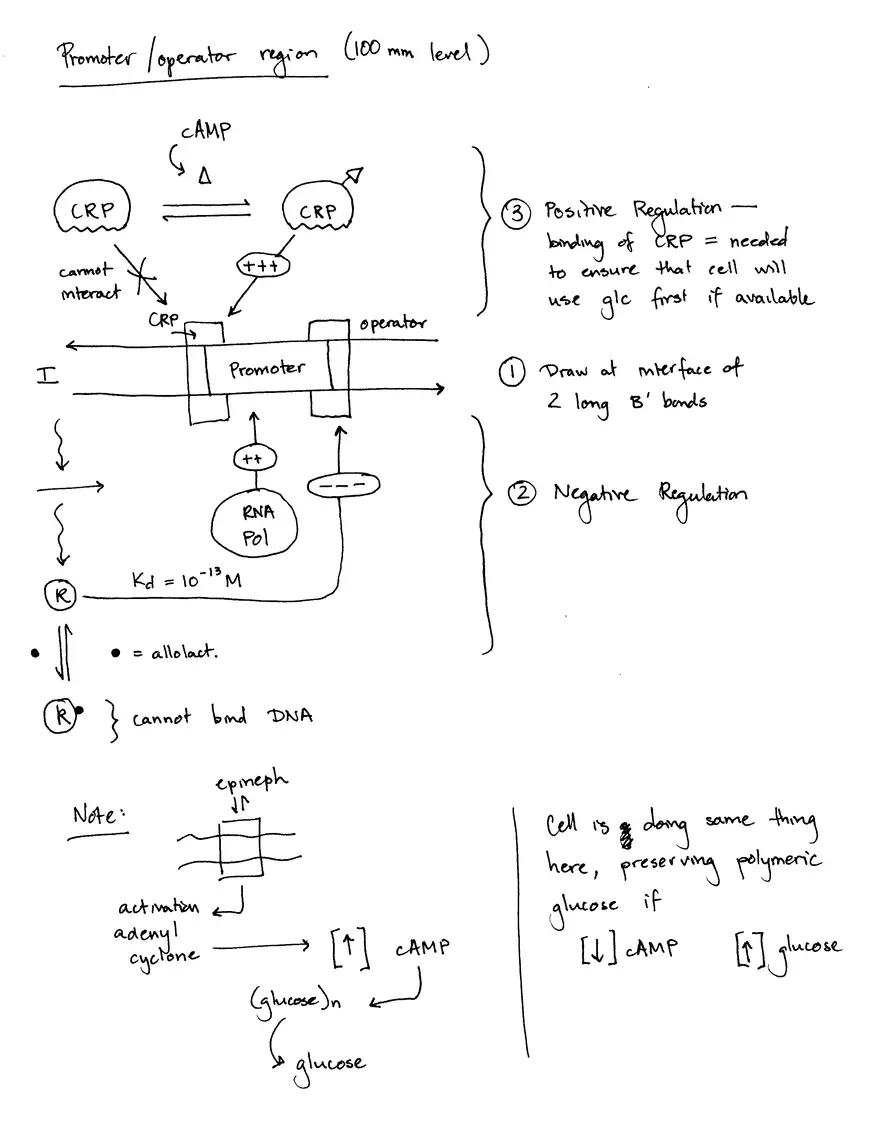 Promoter/operator region (100 mm level)
cAMP
Δ
CRP
CRP
③ Positive Regulation —
binding of CRP = needed
to ensure that cell will
use glc first if available
cannot
interact
+++
CRP
operator
I
Promoter
① Draw at interface of
2 long B' bonds
++
---
② Negative Regulation
RNA
Pol
Kd = 10⁻¹³ M
R
• = allolact.
R
} cannot bind DNA
Note:
epineph
activation
adenyl
cyclone
[↑] cAMP
(glucose)n
glucose
Cell is doing same thing
here, preserving polymeric
glucose if
[↓] cAMP [↑] glucose